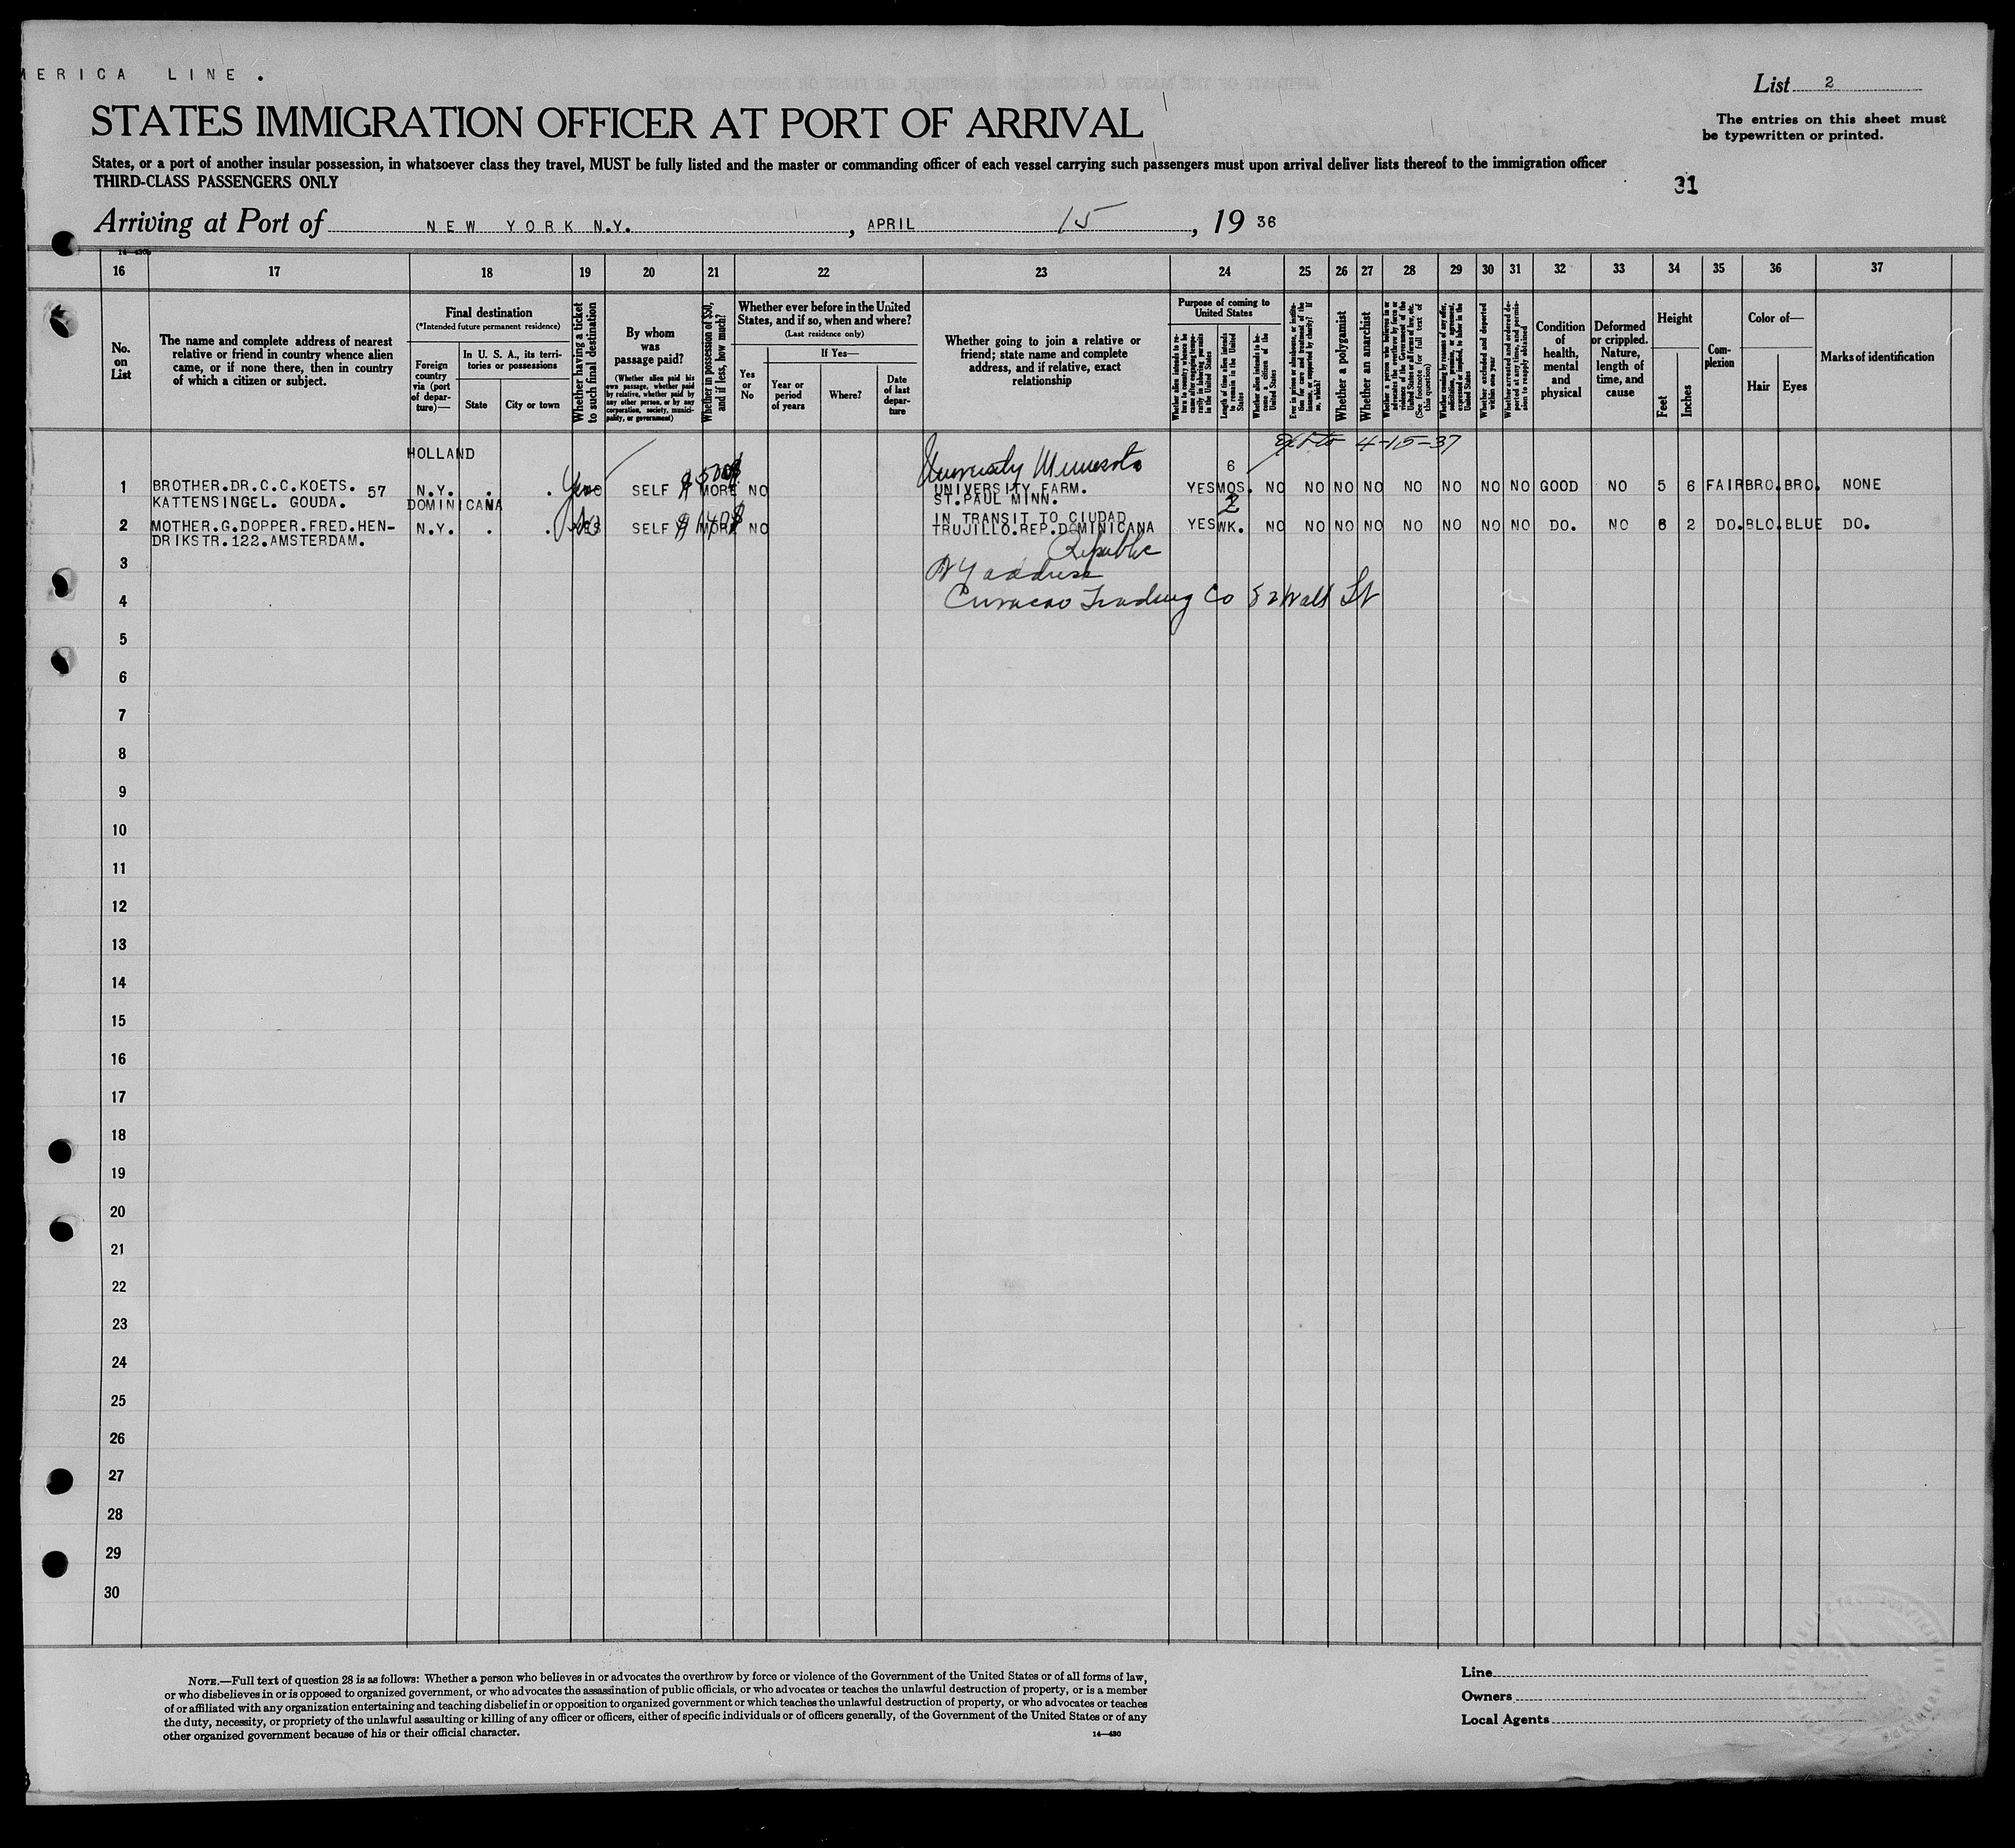 MERICA LINE .
List 2
STATES IMMIGRATION OFFICER AT PORT OF ARRIVAL
The entries on this sheet must
be typewritten or printed.
States, or a port of another insular possession, in whatsoever class they travel, MUST be fully listed and the master or commanding officer of each vessel carrying such passengers must upon arrival deliver lists thereof to the immigration officer
THIRD-CLASS PASSENGERS ONLY
31
Arriving at Port of NEW YORK N.Y. , APRIL 15 , 19 36
16 17 18 19 20 21 22 23 24 25 26 27 28 29 30 31 32 33 34 35 36 37
No.
on
List
The name and complete address of nearest
relative or friend in country whence alien
came, or if none there, then in country
of which a citizen or subject.
Final destination
(*Intended future permanent residence)
Foreign
country
via (port
of depar-
ture)—
In U. S. A., its terri-
tories or possessions
State
City or town
Whether having a ticket
to such final destination
By whom
was
passage paid?
(Whether alien paid his
own passage, whether paid
by relative, whether paid by
any other person, or by any
corporation, society, munici-
pality, or government)
Whether in possession of $50,
and if less, how much?
Whether ever before in the United
States, and if so, when and where?
(Last residence only)
Yes
or
No
If Yes—
Year or
period
of years
Where?
Date
of last
depar-
ture
Whether going to join a relative or
friend; state name and complete
address, and if relative, exact
relationship
Purpose of coming to
United States
Whether alien intends to re-
turn to country whence he
came after engaging tempo-
rarily in laboring pursuits
in the United States
Length of time alien intends
to remain in the United
States
Whether alien intends to be-
come a citizen of the
United States
Ever in prison or almshouse, or institu-
tion for care and treatment of the
insane, or supported by charity? If
so, which?
Whether a polygamist
Whether an anarchist
Whether a person who believes in or
advocates the overthrow by force or
violence of the Government of the
United States or all forms of law, etc.
(See footnote for full text of
this question)
Whether coming by reasons of any offer,
solicitation, promise, or agreement,
expressed or implied, to labor in the
United States
Whether excluded and deported
within one year
Whether arrested and ordered de-
ported at any time, and permis-
sion to reapply obtained
Condition
of
health,
mental
and
physical
Deformed
or crippled.
Nature,
length of
time, and
cause
Height
Feet
Inches
Com-
plexion
Color of—
Hair
Eyes
Marks of identification
HOLLAND University Minnesota 6 4-15-37
1 BROTHER.DR.C.C.KOETS. 57 N.Y. . . Yes SELF $500 MORE NO UNIVERSITY FARM. YES MOS. NO NO NO NO NO NO NO NO GOOD NO 5 6 FAIR BRO. BRO. NONE
KATTENSINGEL. GOUDA. DOMINICANA ST.PAUL MINN. 2
2 MOTHER.G.DOPPER.FRED.HEN- N.Y. . . YES No SELF $140 MORE NO IN TRANSIT TO CIUDAD
DRIKSTR.122.AMSTERDAM. TRUJILLO.REP.DOMINICANA YES WK. NO NO NO NO NO NO NO NO DO. NO 6 2 DO. BLO. BLUE DO.
Republic
3 NY address
4 Curacao Trading Co 82 Wall St
5
6
7
8
9
10
11
12
13
14
15
16
17
18
19
20
21
22
23
24
25
26
27
28
29
30
NOTE.—Full text of question 28 is as follows: Whether a person who believes in or advocates the overthrow by force or violence of the Government of the United States or of all forms of law,
or who disbelieves in or is opposed to organized government, or who advocates the assassination of public officials, or who advocates or teaches the unlawful destruction of property, or is a member
of or affiliated with any organization entertaining and teaching disbelief in or opposition to organized government or which teaches the unlawful destruction of property, or who advocates or teaches
the duty, necessity, or propriety of the unlawful assaulting or killing of any officer or officers, either of specific individuals or of officers generally, of the Government of the United States or of any
other organized government because of his or their official character.
14—430
Line
Owners
Local Agents